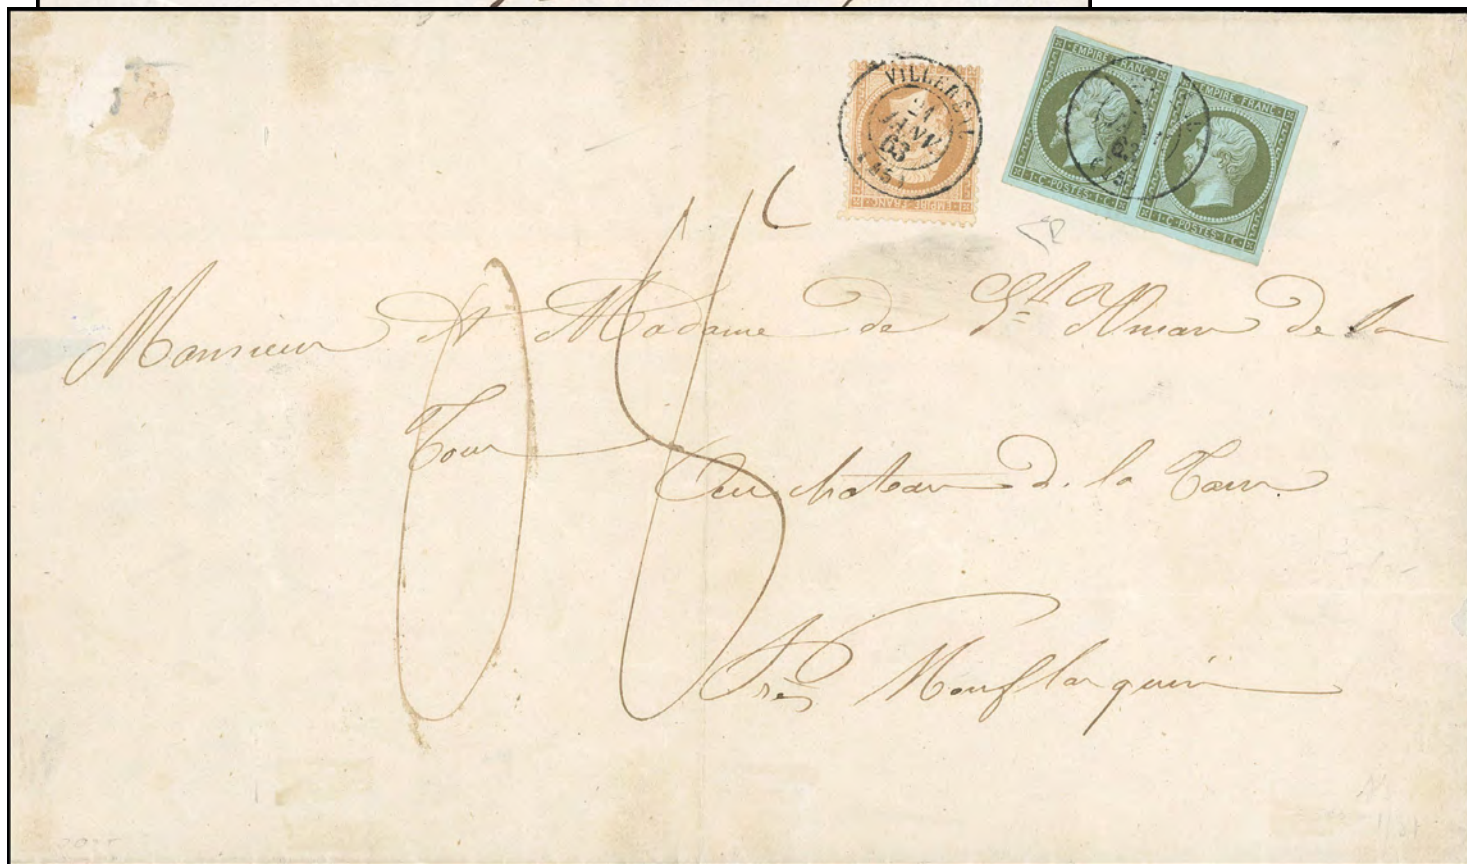 VILLERÉAL
21
JANV.
63
(45)
EMPIRE FRANC
EMPIRE · FRANC ·
1 · C · POSTES · 1 · C ·
EMPIRE · FRANC ·
1 · C · POSTES · 1 · C ·
63
Monsieur et Madame de St Amans de la
Tour
Au chateau de la Tour
Près Monflanquin